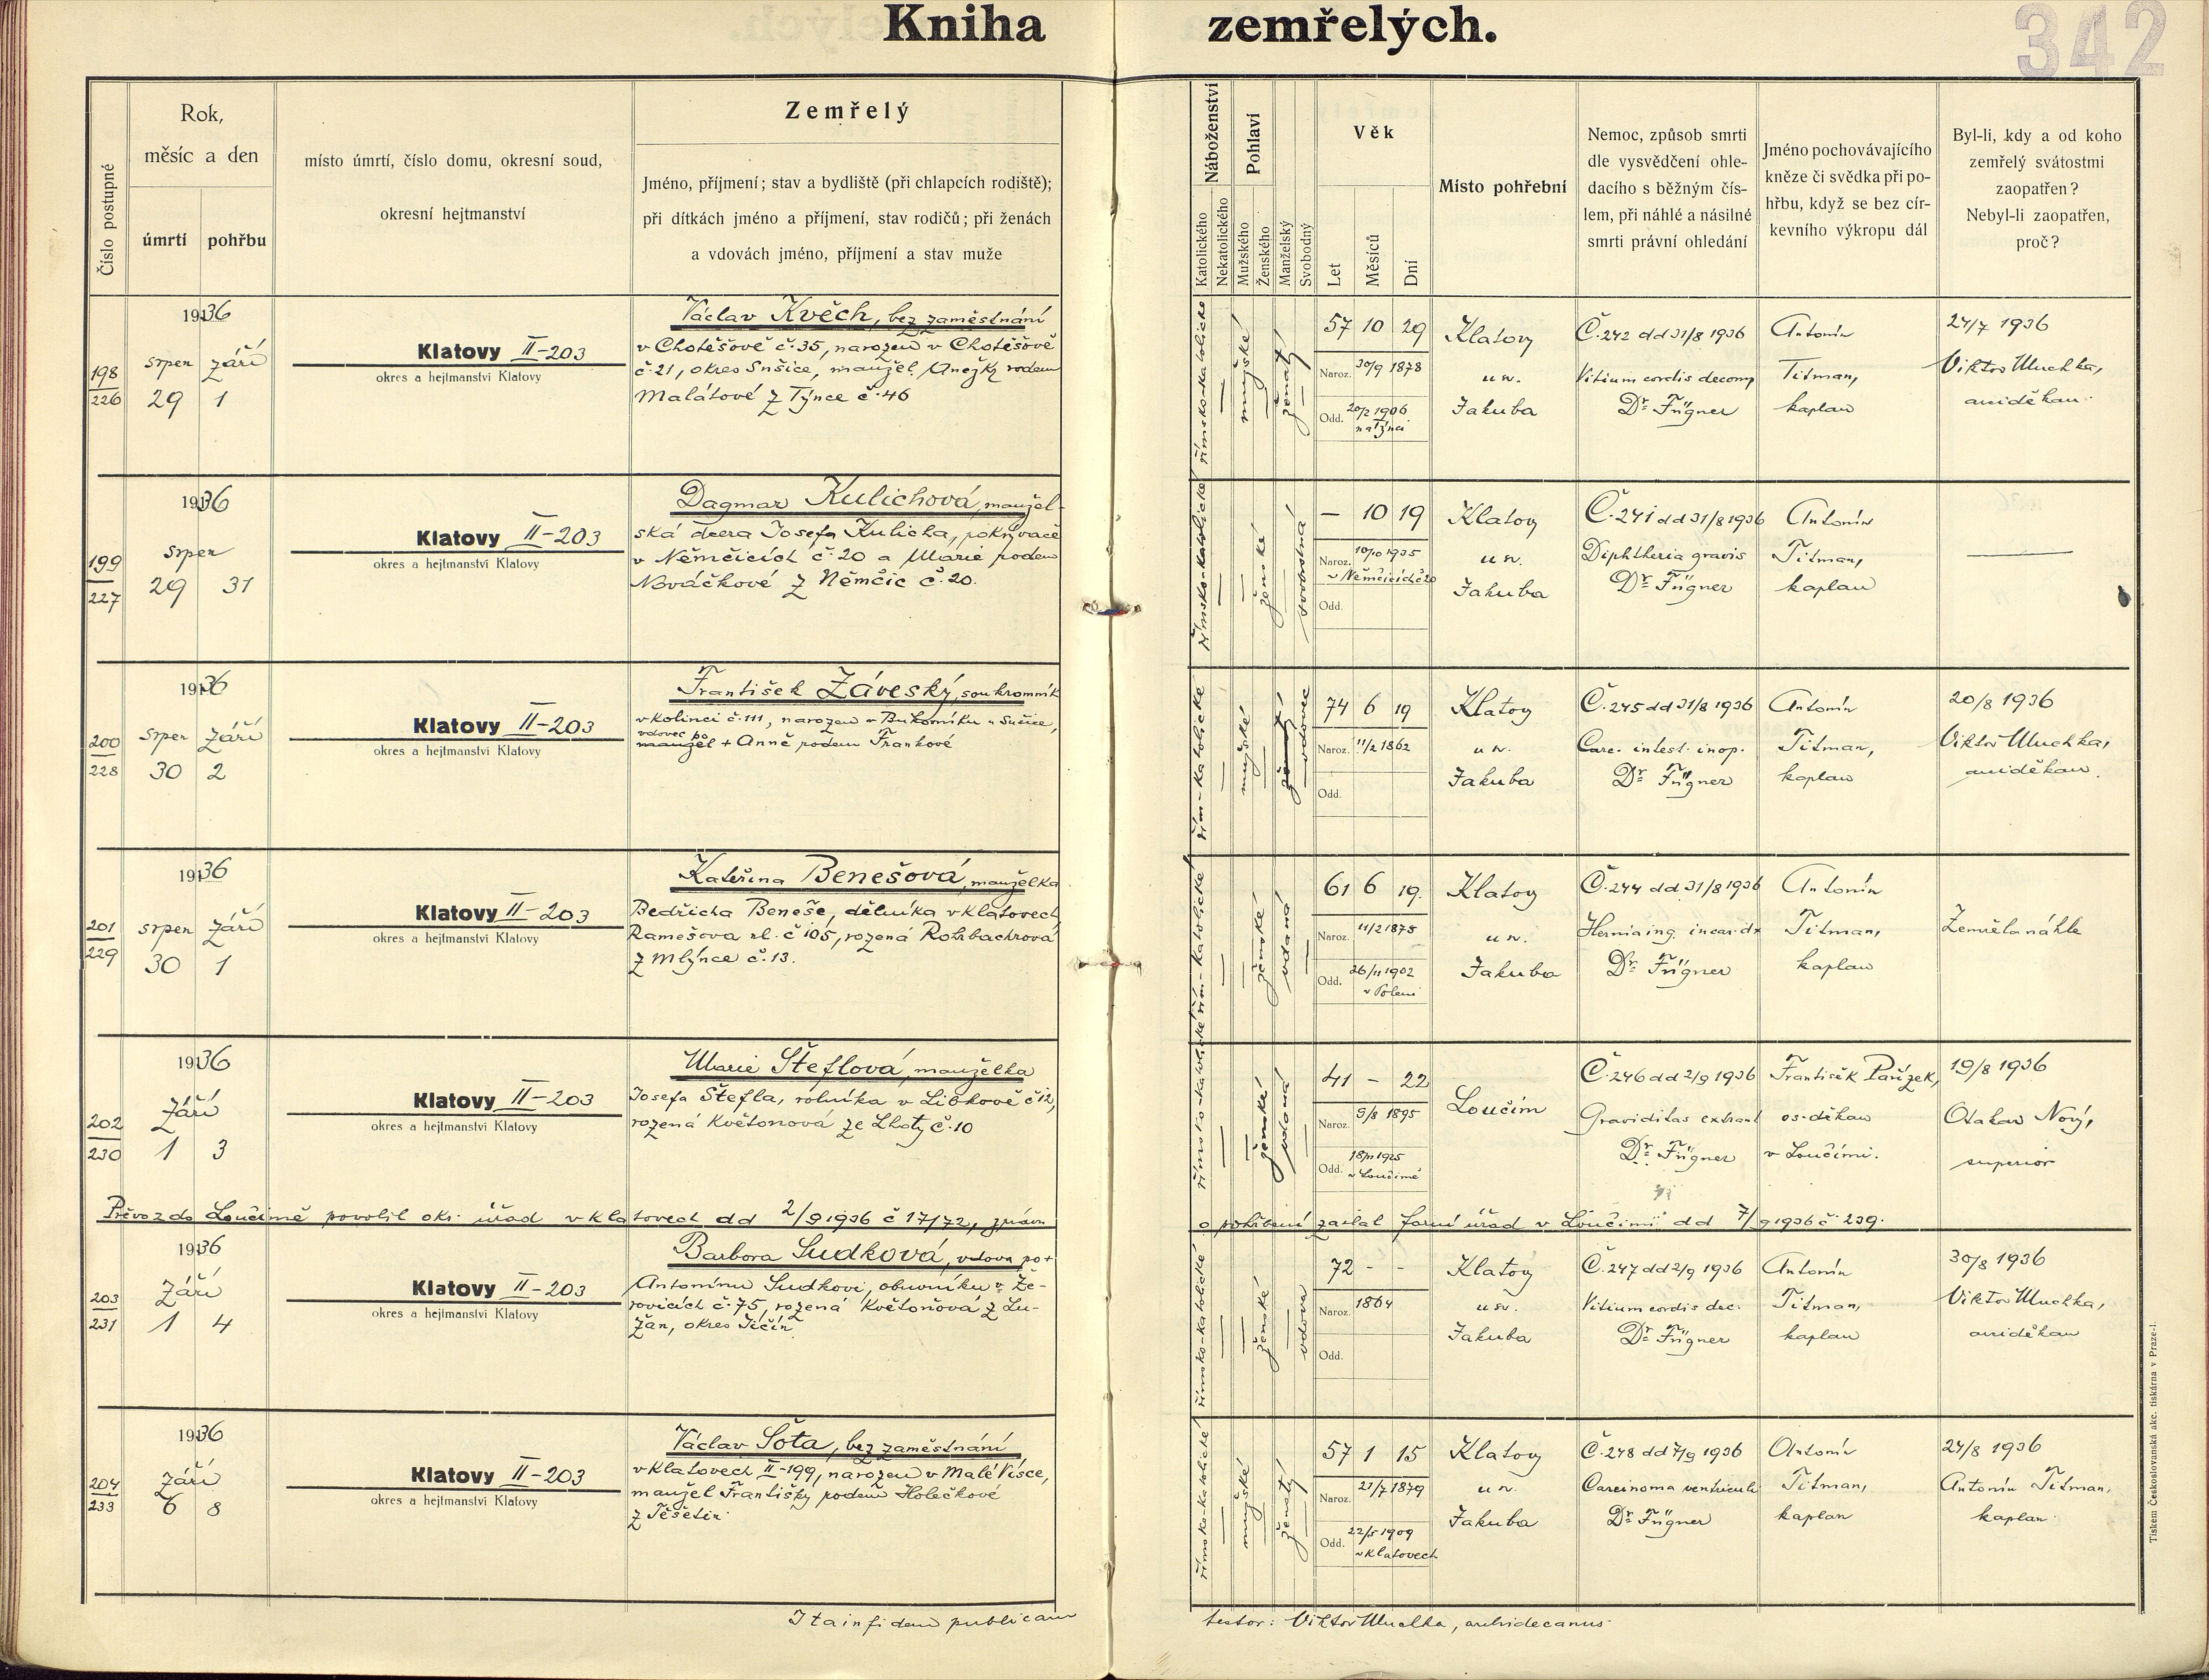 Kniha zemřelých.
342
Číslo postupné
Rok,
měsíc a den
úmrtí
pohřbu
místo úmrtí, číslo domu, okresní soud,
okresní hejtmanství
Zemřelý
Jméno, příjmení; stav a bydliště (při chlapcích rodiště);
při dítkách jméno a příjmení, stav rodičů; při ženách
a vdovách jméno, příjmení a stav muže
Náboženství
Katolického
Nekatolického
Pohlaví
Mužského
Ženského
Manželský
Svobodný
Věk
Let
Měsíců
Dní
Místo pohřební
Nemoc, způsob smrti
dle vysvědčení ohle-
dacího s běžným čís-
lem, při náhlé a násilné
smrti právní ohledání
Jméno pochovávajícího
kněze či svědka při po-
hřbu, když se bez cír-
kevního výkropu dál
Byl-li, kdy a od koho
zemřelý svátostmi
zaopatřen?
Nebyl-li zaopatřen,
proč?
198
226
1936
srpen září
29 1
Klatovy II-203
okres a hejtmanství Klatovy
Václav Kvěch, bez zaměstnání
v Chotěšově č. 35, narozen v Chotěšově
č. 21, okres Sušice, manžel Anežky rodem
Malátové z Týnce č. 46
římsko-katolické
mužské
ženatý
57 10 29
Naroz. 30/9 1878
Odd. 20/2 1906
na Týnci
Klatovy
u sv.
Jakuba
Č. 242 dd 31/8 1936
Vitium cordis decomp
Dr. Fügner
Antonín
Titman,
kaplan
24/7 1936
Viktor Muchka,
arciděkan.
199
227
1936
srpen
29 31
Klatovy II-203
okres a hejtmanství Klatovy
Dagmar Kulichová, manžel-
ská dcera Josefa Kulicha, pokrývače
v Němčicích č. 20 a Marie rodem
Nováčkové z Němčic č. 20.
římsko-katolické
ženské
svobodná
— 10 19
Naroz. 10/10 1935
v Němčicích č. 20
Odd.
Klatovy
u sv.
Jakuba
Č. 241 dd 31/8 1936
Diphtheria gravis
Dr. Fügner
Antonín
Titman,
kaplan
200
228
1936
srpen září
30 2
Klatovy II-203
okres a hejtmanství Klatovy
František Záveský, soukromník
v Kolinci č. 111, narozen v Bukovníku u Sušice,
vdovec po
manžel + Anně rodem Frankové
řím-katolické
mužské
ženatý
vdovec
74 6 19
Naroz. 11/2 1862
Odd.
Klatovy
u sv.
Jakuba
Č. 245 dd 31/8 1936
Carc. intest. inop.
Dr. Fügner
Antonín
Titman,
kaplan
20/8 1936
Viktor Muchka,
arciděkan.
201
229
1936
srpen září
30 1
Klatovy II-203
okres a hejtmanství Klatovy
Kateřina Benešová, manželka
Bedřicha Beneše, dělníka v Klatovech
Ramešova ul. č 105, rozená Rohrbachrová
z Mlýnce č. 13.
řím-katolické
ženské
vdaná
61 6 19.
Naroz. 11/2 1875
Odd. 26/11 1902
v Poleni
Klatovy
u sv.
Jakuba
Č. 244 dd 31/8 1936
Hernia ing. incar. dx
Dr. Fügner
Antonín
Titman,
kaplan
Zemřela náhle
202
230
1936
Září
1 3
Klatovy II-203
okres a hejtmanství Klatovy
Marie Šteflová, manželka
Josefa Štefla, rolníka v Libkově č 12,
rozená Květoňová ze Lhoty č. 10
římsko-katolické
ženské
vdaná
41 - 22
Naroz. 9/8 1895
Odd. 18/11 1925
v Loučimě
Loučím
Č. 246 dd 2/9 1936
Graviditas extraut
Dr. Fügner
František Pařízek,
os. děkan
v Loučimi.
19/8 1936
Otakar Nový,
superior
Převoz do Loučimě povolil okr. úřad v Klatovech dd 2/9 1936 č 17/72, zprávu
o pohřbení zaslal farní úřad v Loučimi dd 7/9 1936 č. 239.
203
231
1936
Září
1 4
Klatovy II-203
okres a hejtmanství Klatovy
Barbora Sudková, vdova po +
Antonínu Sudkovi, obuvníku v Že-
rovicích č. 75, rozená Květoňová z Lu-
žan, okres Jičín
římsko-katolické
ženské
vdova
72 - -
Naroz. 1864
Odd.
Klatovy
u sv.
Jakuba
Č. 247 dd 2/9 1936
Vitium cordis dec.
Dr. Fügner
Antonín
Titman,
kaplan
30/8 1936
Viktor Muchka,
arciděkan
204
233
1936
Září
6 8
Klatovy II-203
okres a hejtmanství Klatovy
Václav Šota, bez zaměstnání
v Klatovech II-199, narozen v Malé Vísce,
manžel Františky rodem Holečkové
z Těšetin.
římsko-katolické
mužské
ženatý
57 1 15
Naroz. 21/7 1879
Odd. 22/5 1909
v Klatovech
Klatovy
u sv.
Jakuba
Č. 248 dd 7/9 1936
Carcinoma ventriculi
Dr. Fügner
Antonín
Titman,
kaplan
24/8 1936
Antonín Titman,
kaplan.
Ita in fidem publicam
testor: Viktor Muchka, archidecanus.
Tiskem Československá akc. tiskárna v Praze-I.